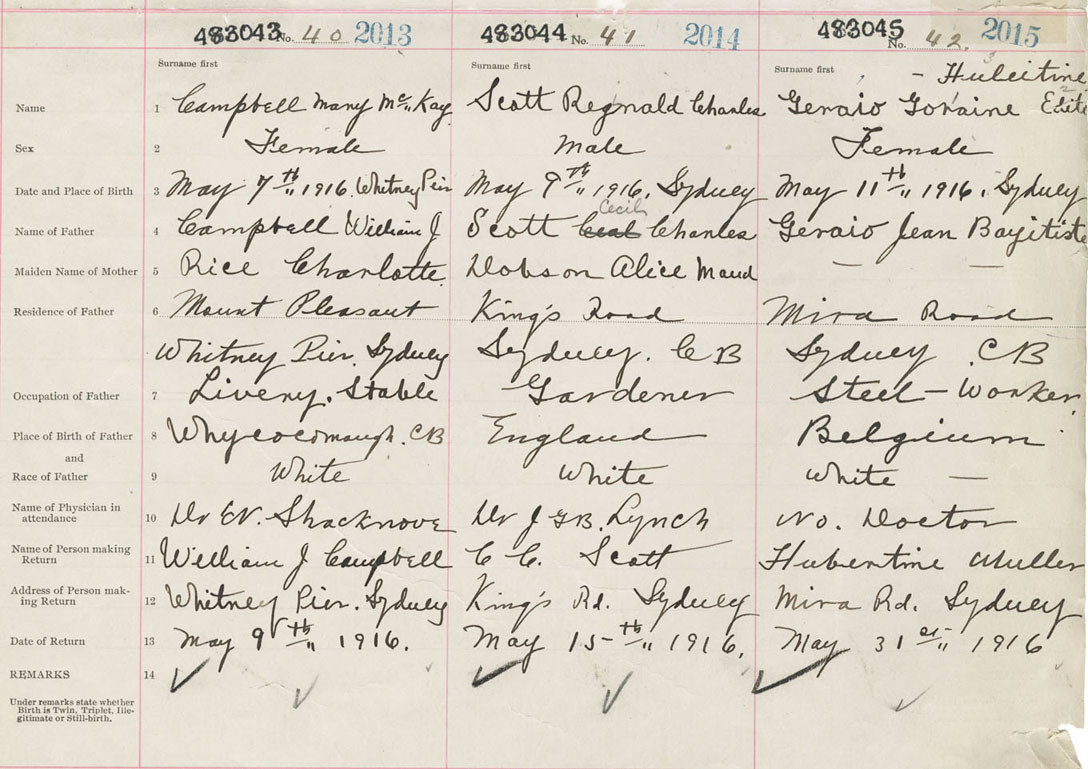 483043 No. 40 2013 483044 No. 41 2014 483045 No. 42 2015
Surname first Surname first Surname first - Hubertine
Name 1 Campbell Mary McKay Scott Reginald Charles Geraio Goraine
Sex 2 Female Male Female
Date and Place of Birth 3 May 7th 1916. Whitney Pier May 9th 1916. Sydney May 11th 1916. Sydney
Cecil
Name of Father 4 Campbell William J Scott Charles Geraio Jean Baptiste
Maiden Name of Mother 5 Rice Charlotte Dobson Alice Maud — —
Residence of Father 6 Mount Pleasant King's Road Mira Road
Whitney Pier. Sydney Sydney. C B Sydney CB
Occupation of Father 7 Livery. Stable Gardener Steel-Worker
Place of Birth of Father 8 Whycocomaugh. CB England Belgium
and
Race of Father 9 White White White —
Name of Physician in
attendance 10 Dr Shacknove Dr J G B. Lynch No. Doctor
Name of Person making
Return 11 William J Campbell C C. Scott Hubertine Muller
Address of Person mak-
ing Return 12 Whitney Pier. Sydney King's Rd. Sydney Mira Rd. Sydney
Date of Return 13 May 9th 1916. May 15th 1916. May 31st 1916
REMARKS 14
Under remarks state whether
Birth is Twin, Triplet, Ille-
gitimate or Still-birth.